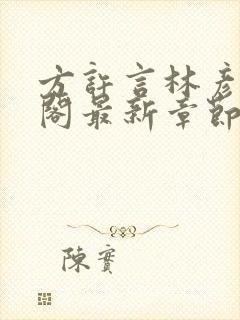 方許言林彥
閣最新章節
陳實